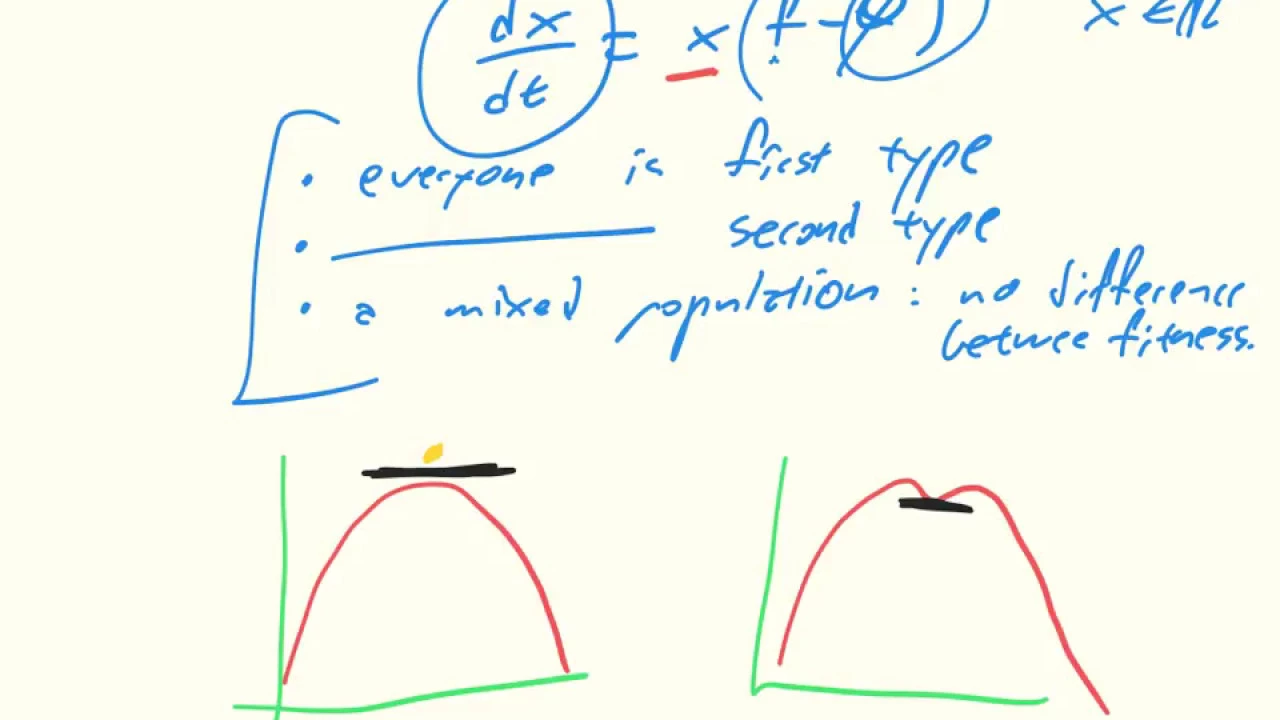 dx/dt = x (f - φ) x ∈ ℝ
• everyone is first type
• ———— second type
• a mixed population : no difference
betwee fitness.